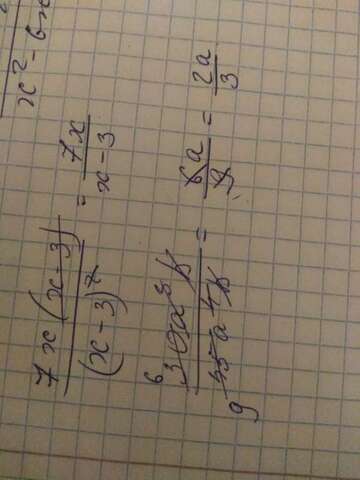 x² - 6x
7x(x-3) / (x-3)² = 7x / x-3
6 30a⁵b / 9 45a⁴b = 6a / 9 = 2a / 3